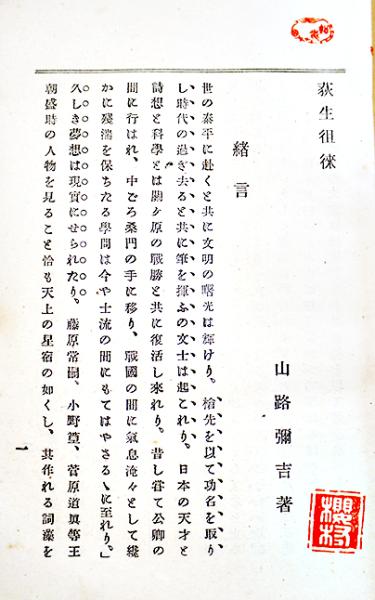 荻生徂徠
山路彌吉著
緒言
世の泰平に赴くと共に文明の曙光は輝けり。槍先を以て功名を取り
し時代の過ぎ去ると共に筆を揮ふの文士は起これり。日本の天才と
詩想と科學とは關ヶ原の戰勝と共に復活し來れり。昔し嘗て公卿の
間に行はれ、中ごろ桑門の手に移り、戰國の間に氣息淹々として纔
かに殘喘を保ちたる學問は今や士流の間にもてはやさるゝに至れり。」
久しき夢想は現實にせられたり。藤原常嗣、小野篁、菅原道眞等王
朝盛時の人物を見ること恰も天上の星宿の如くし、其作れる詞藻を
一
櫻村